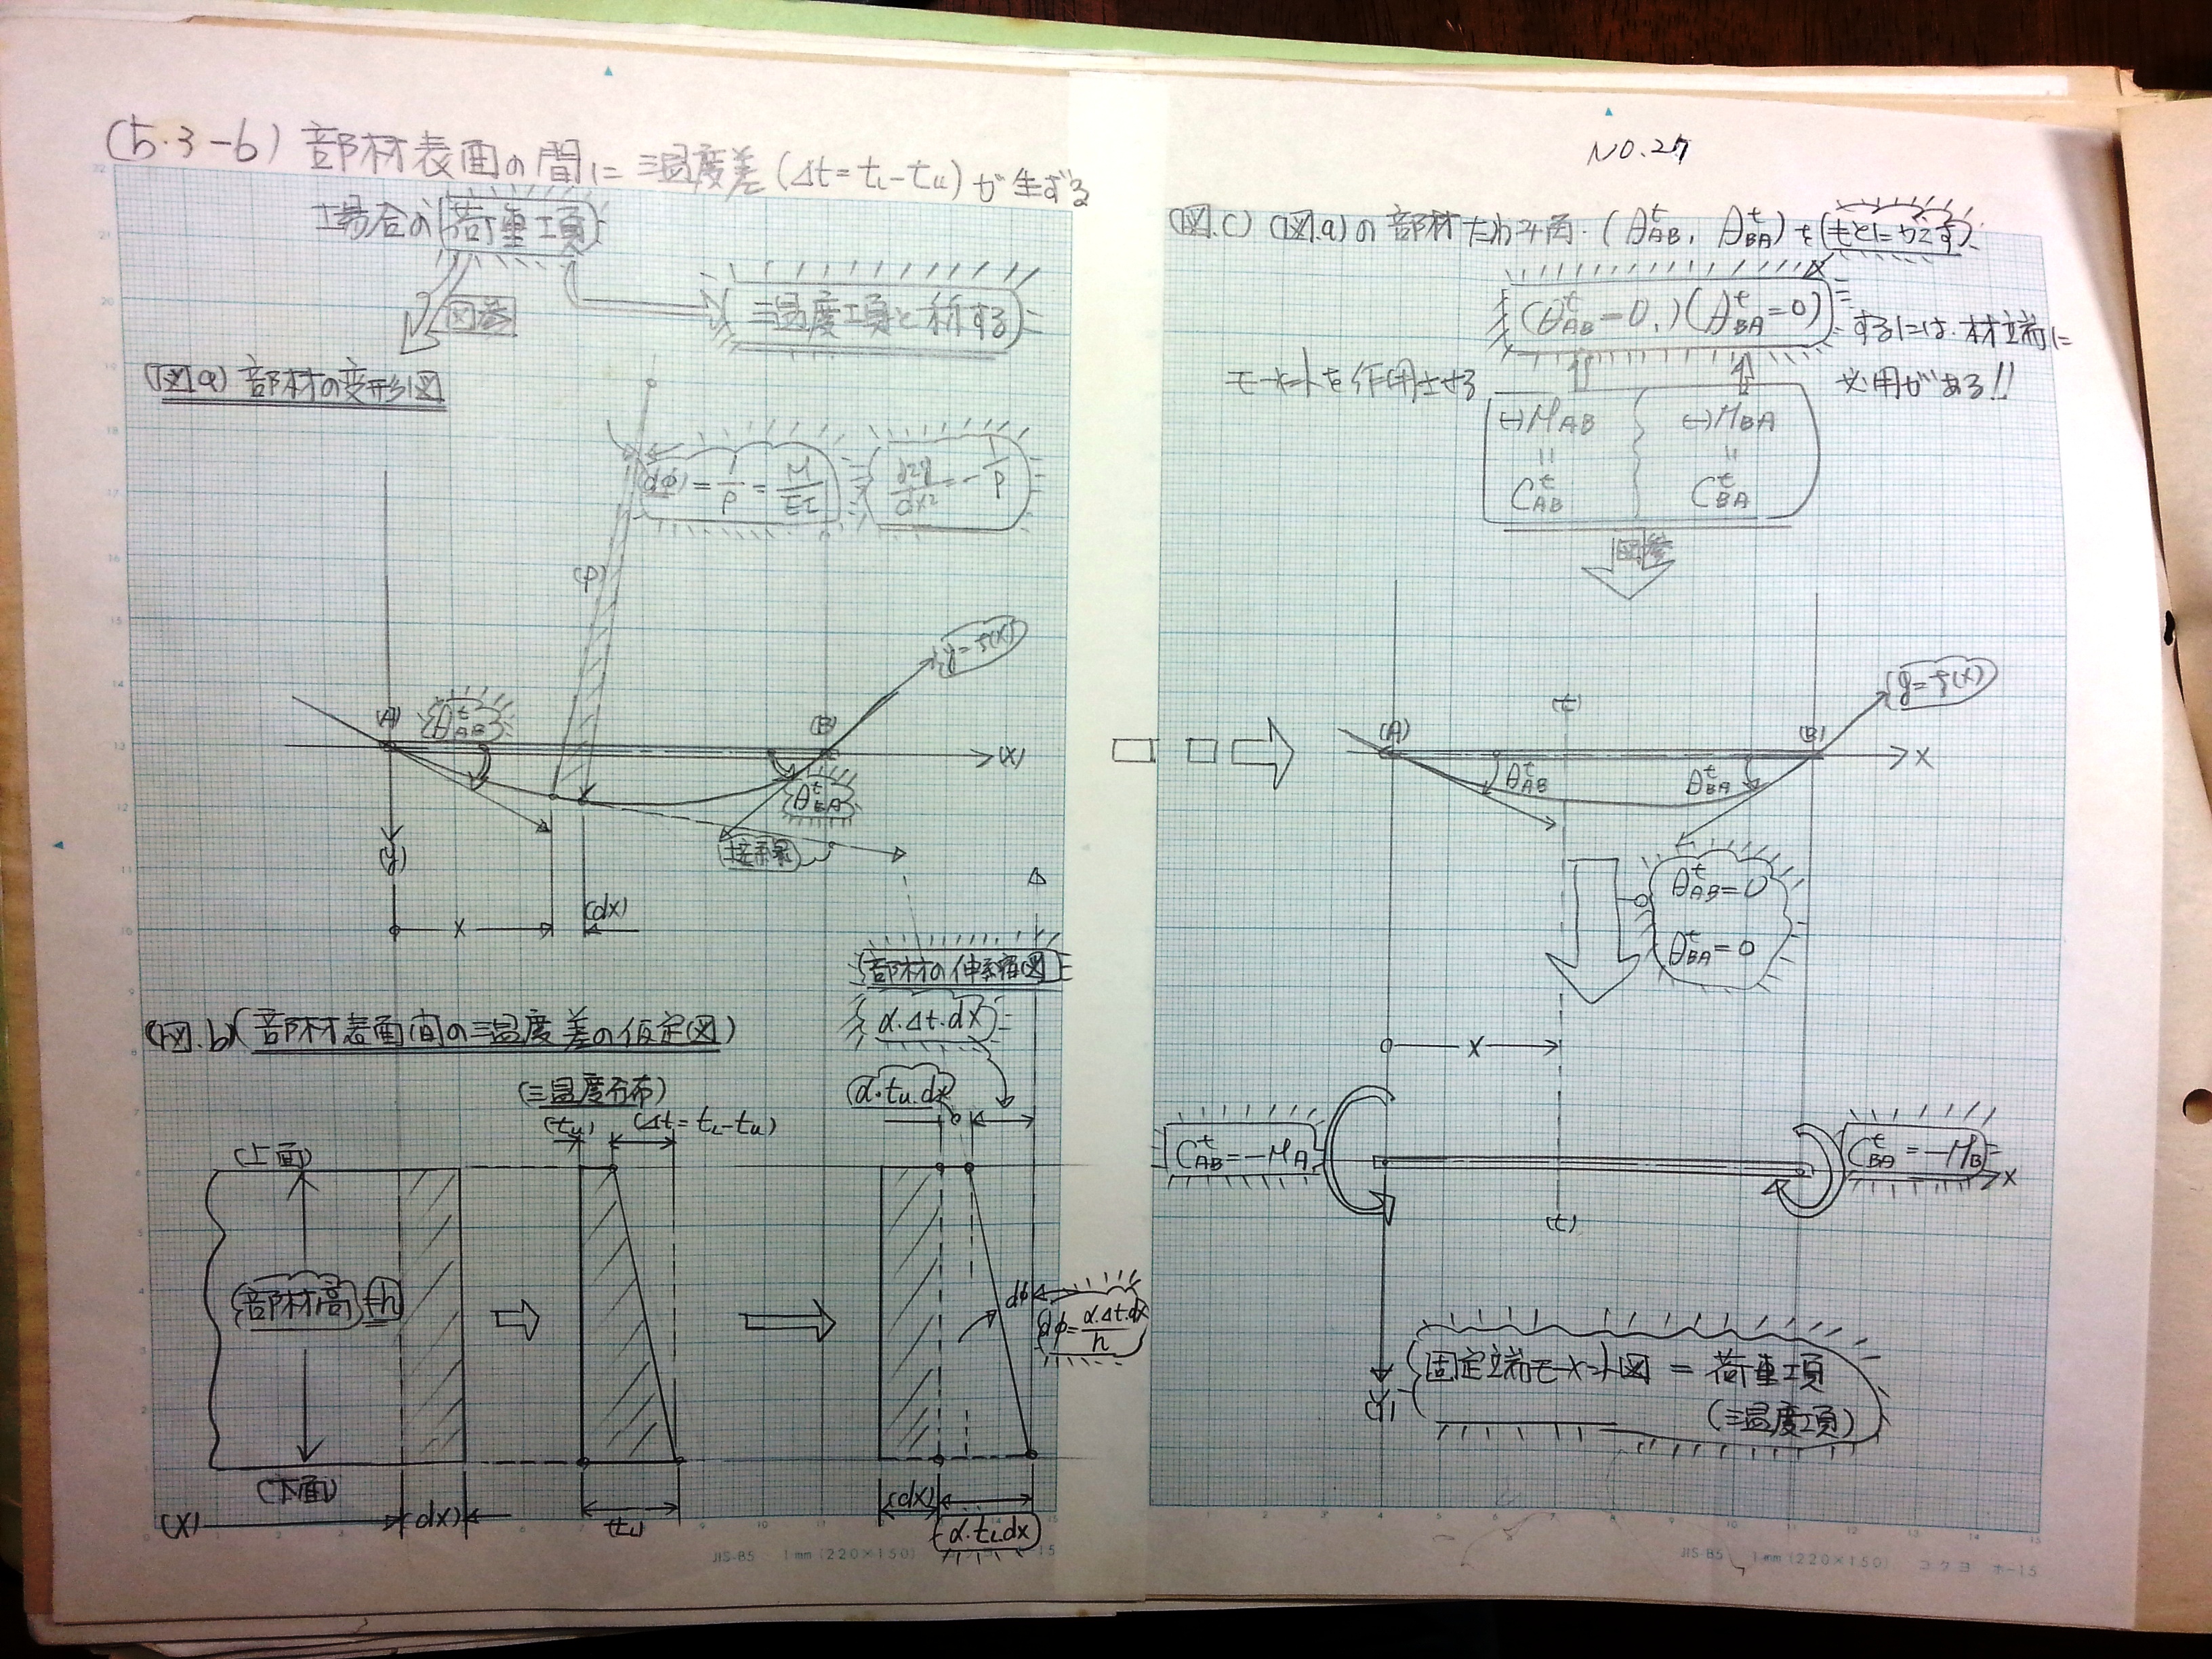 (5.3-b) 部材表面の間に温度差(Δt=tL-tu)が生ずる
場合の(荷重項)
図参
温度項と称する
(図a) 部材の変形図
(dφ)=1/ρ=M/EI
d2y/dx2=-1/ρ
(ρ)
y=f(x)
(A)
θtAB
(B)
(X)
θtBA
接線
(y)
X
(dx)
部材の伸縮図
α.Δt.dx
(図.b)(部材表面間の温度差の仮定図)
(温度分布)
(tu)
(Δt=tL-tu)
α.tu.dx
(上面)
(部材高)=h
dφ
dφ=α.Δt.dx/h
(下面)
(X)
(dx)
(tL)
(dx)
α.tL.dx
JIS-B5 1mm(220×150)
NO.27
(図.c) (図.a)の部材たわみ角.(θtAB, θtBA)を(もとにもどす)
(θtAB=0,)(θtBA=0)
するには.材端に
モーメントを作用させる
必用がある!!
(-)MAB
(-)MBA
=
=
CtAB
CtBA
図参
y=f(x)
(t)
(A)
(B)
X
θtAB
θtBA
θtAB=0
θtBA=0
X
CtAB=-MA
CtBA=-MB
X
(t)
(Y)
固定端モーメント図 = 荷重項
(温度項)
JIS-B5 1mm(220×150) コクヨ ホ-15